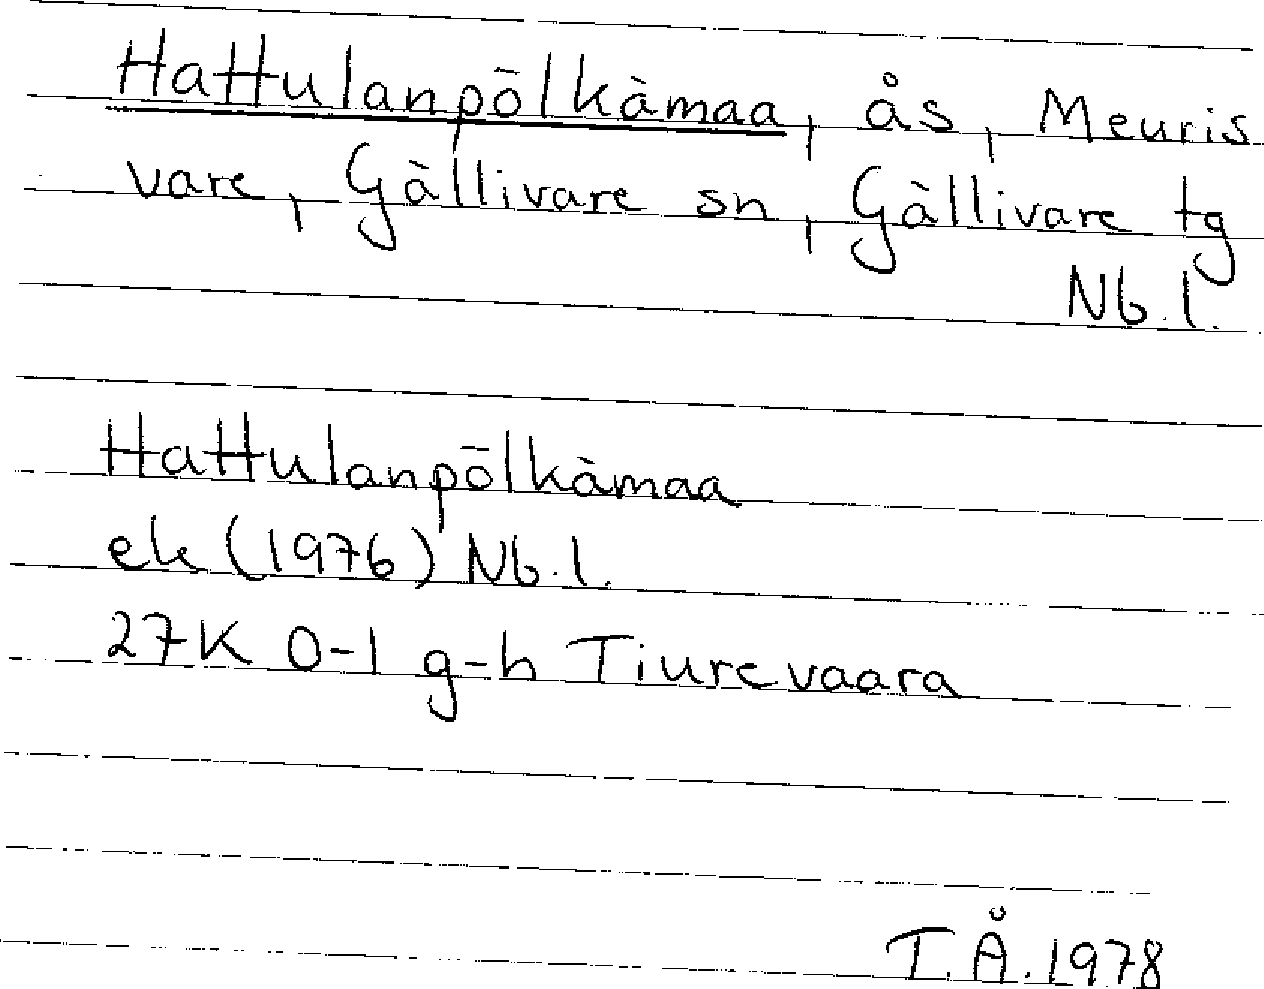 Hattulanpölkämaa, ås, Meuris
vare, Gällivare sn, Gällivare tg
Nb.l.
Hattulanpölkämaa
ek (1976) Nb.l.
27K 0-1 g-h Tiurevaara
T.Å.1978